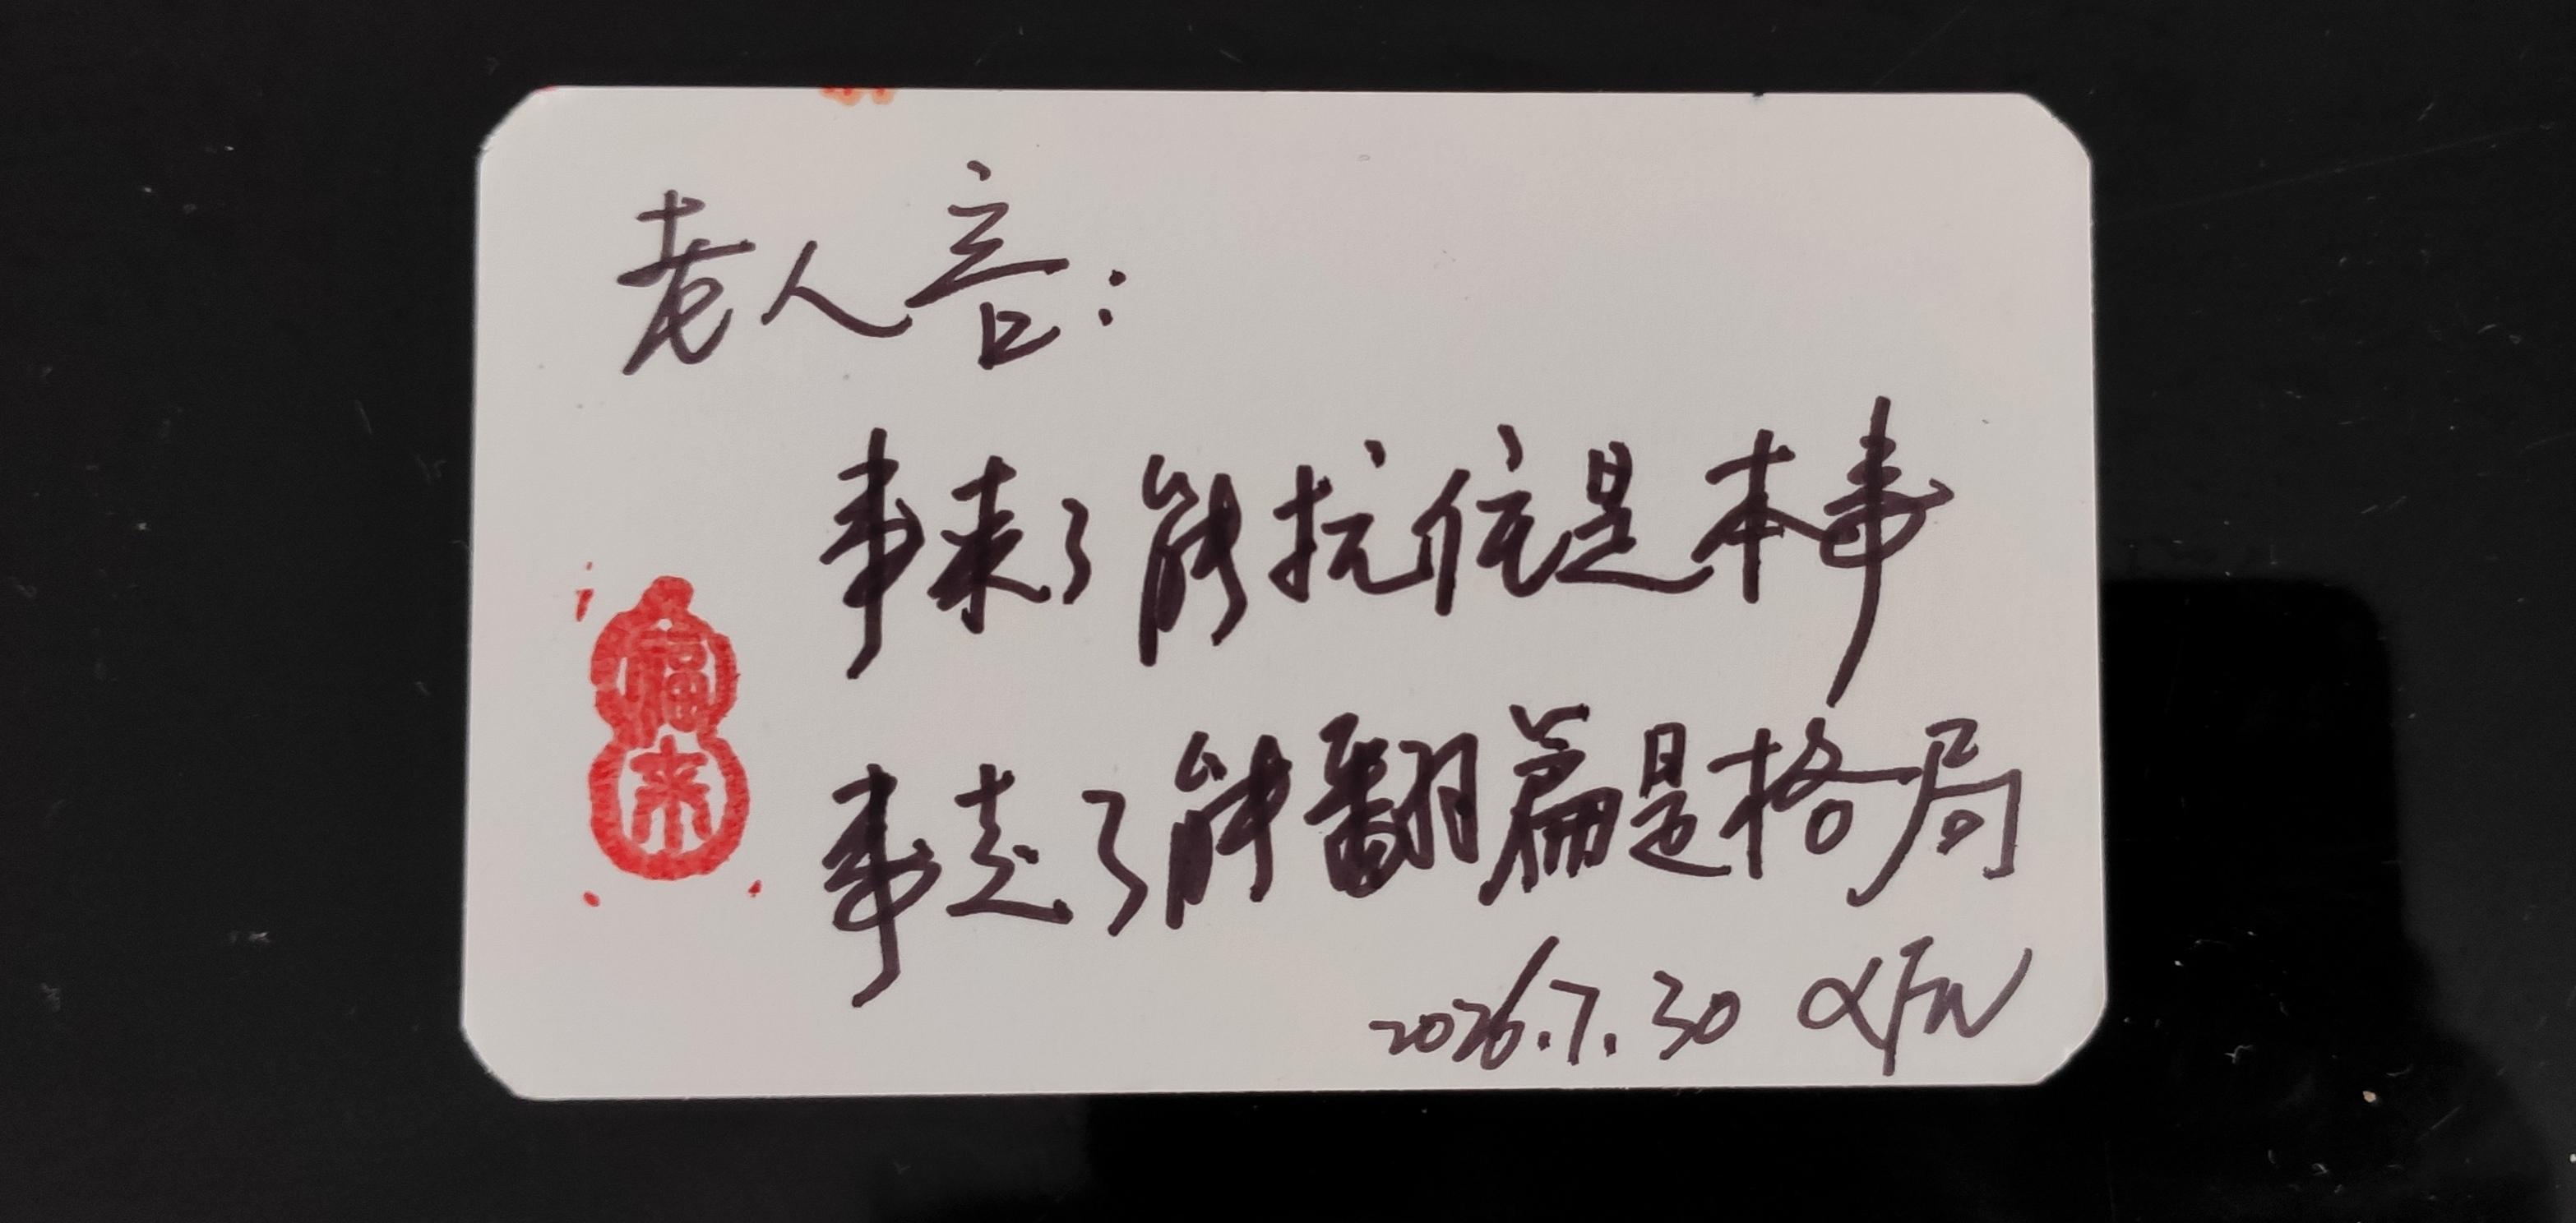 老人言:
事来了能抗住是本事
福来
事走了能翻篇是格局
2026.7.30 XFW